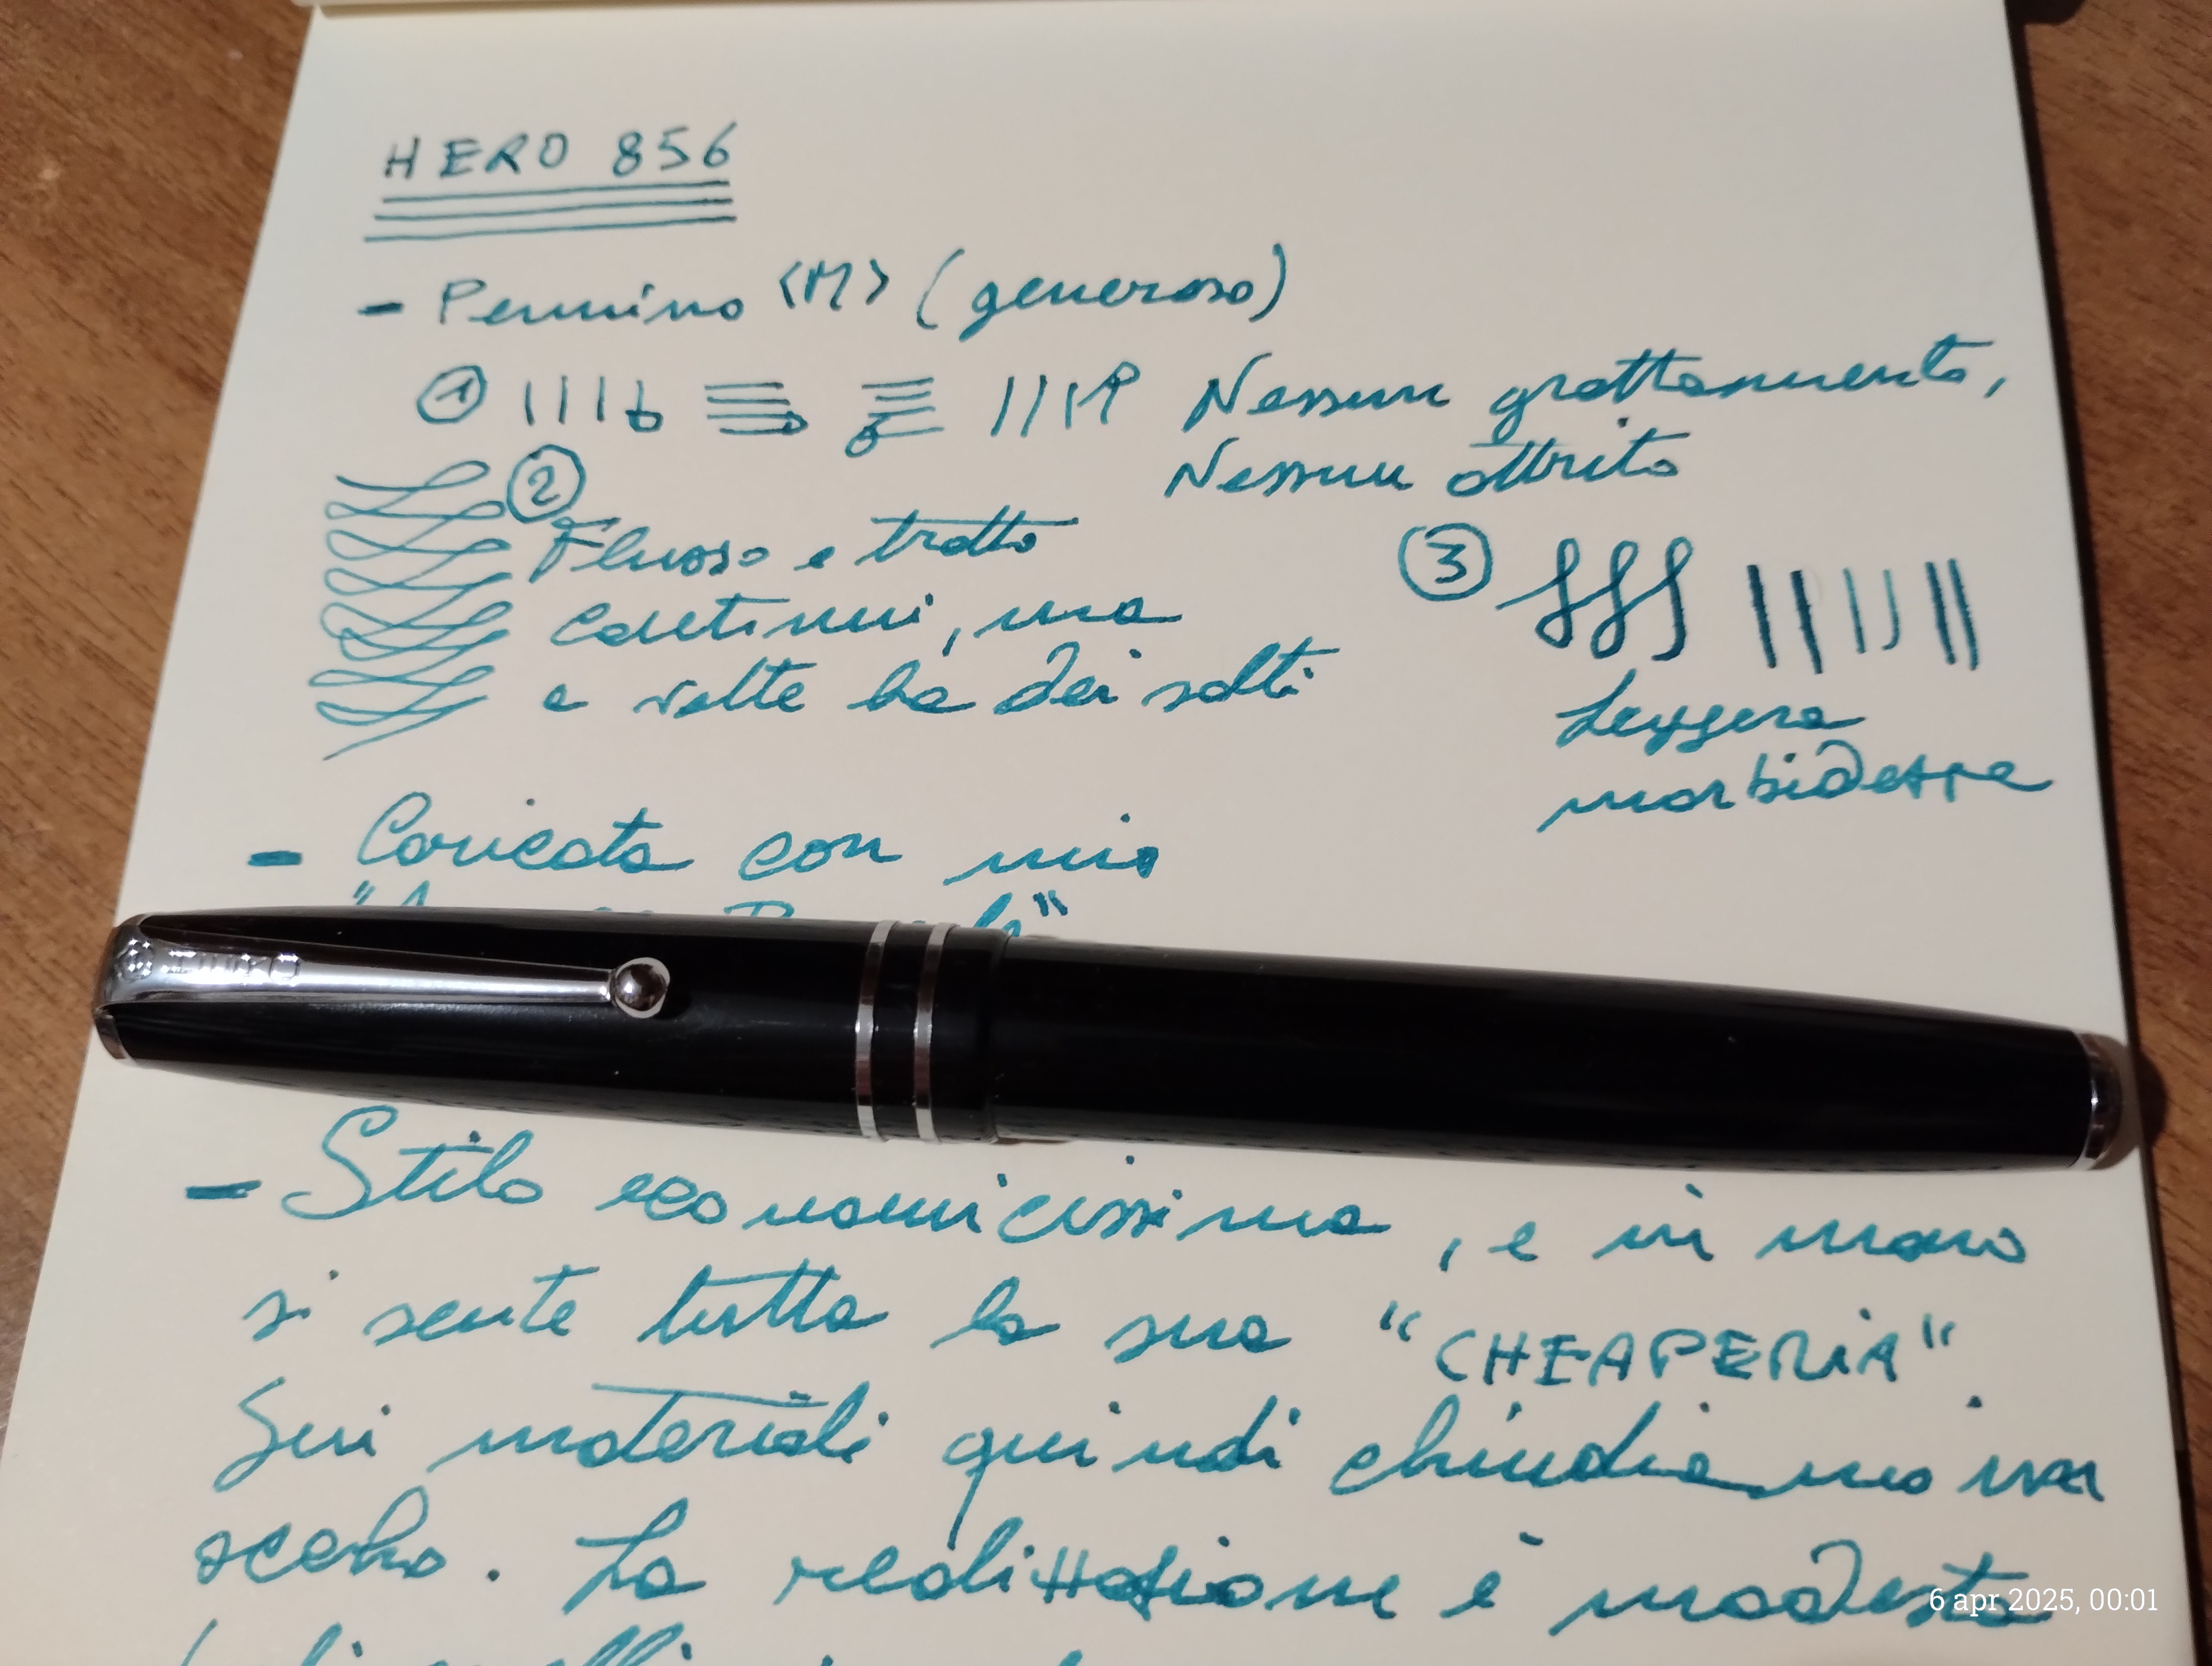 HERO 856
- Pennino <M> (generoso)
① Nessun grattamento,
Nessun attrito
②
Flusso e tratto
continui, ma
a volte ha dei salti
③
Leggera
morbidezza
- Caricata con mio
- Stilo economicissima, e in mano
si sente tutta la sua "CHEAPERIA".
Sui materiali quindi chiudiamo un
occhio. La realizzazione è modesta
6 apr 2025, 00:01